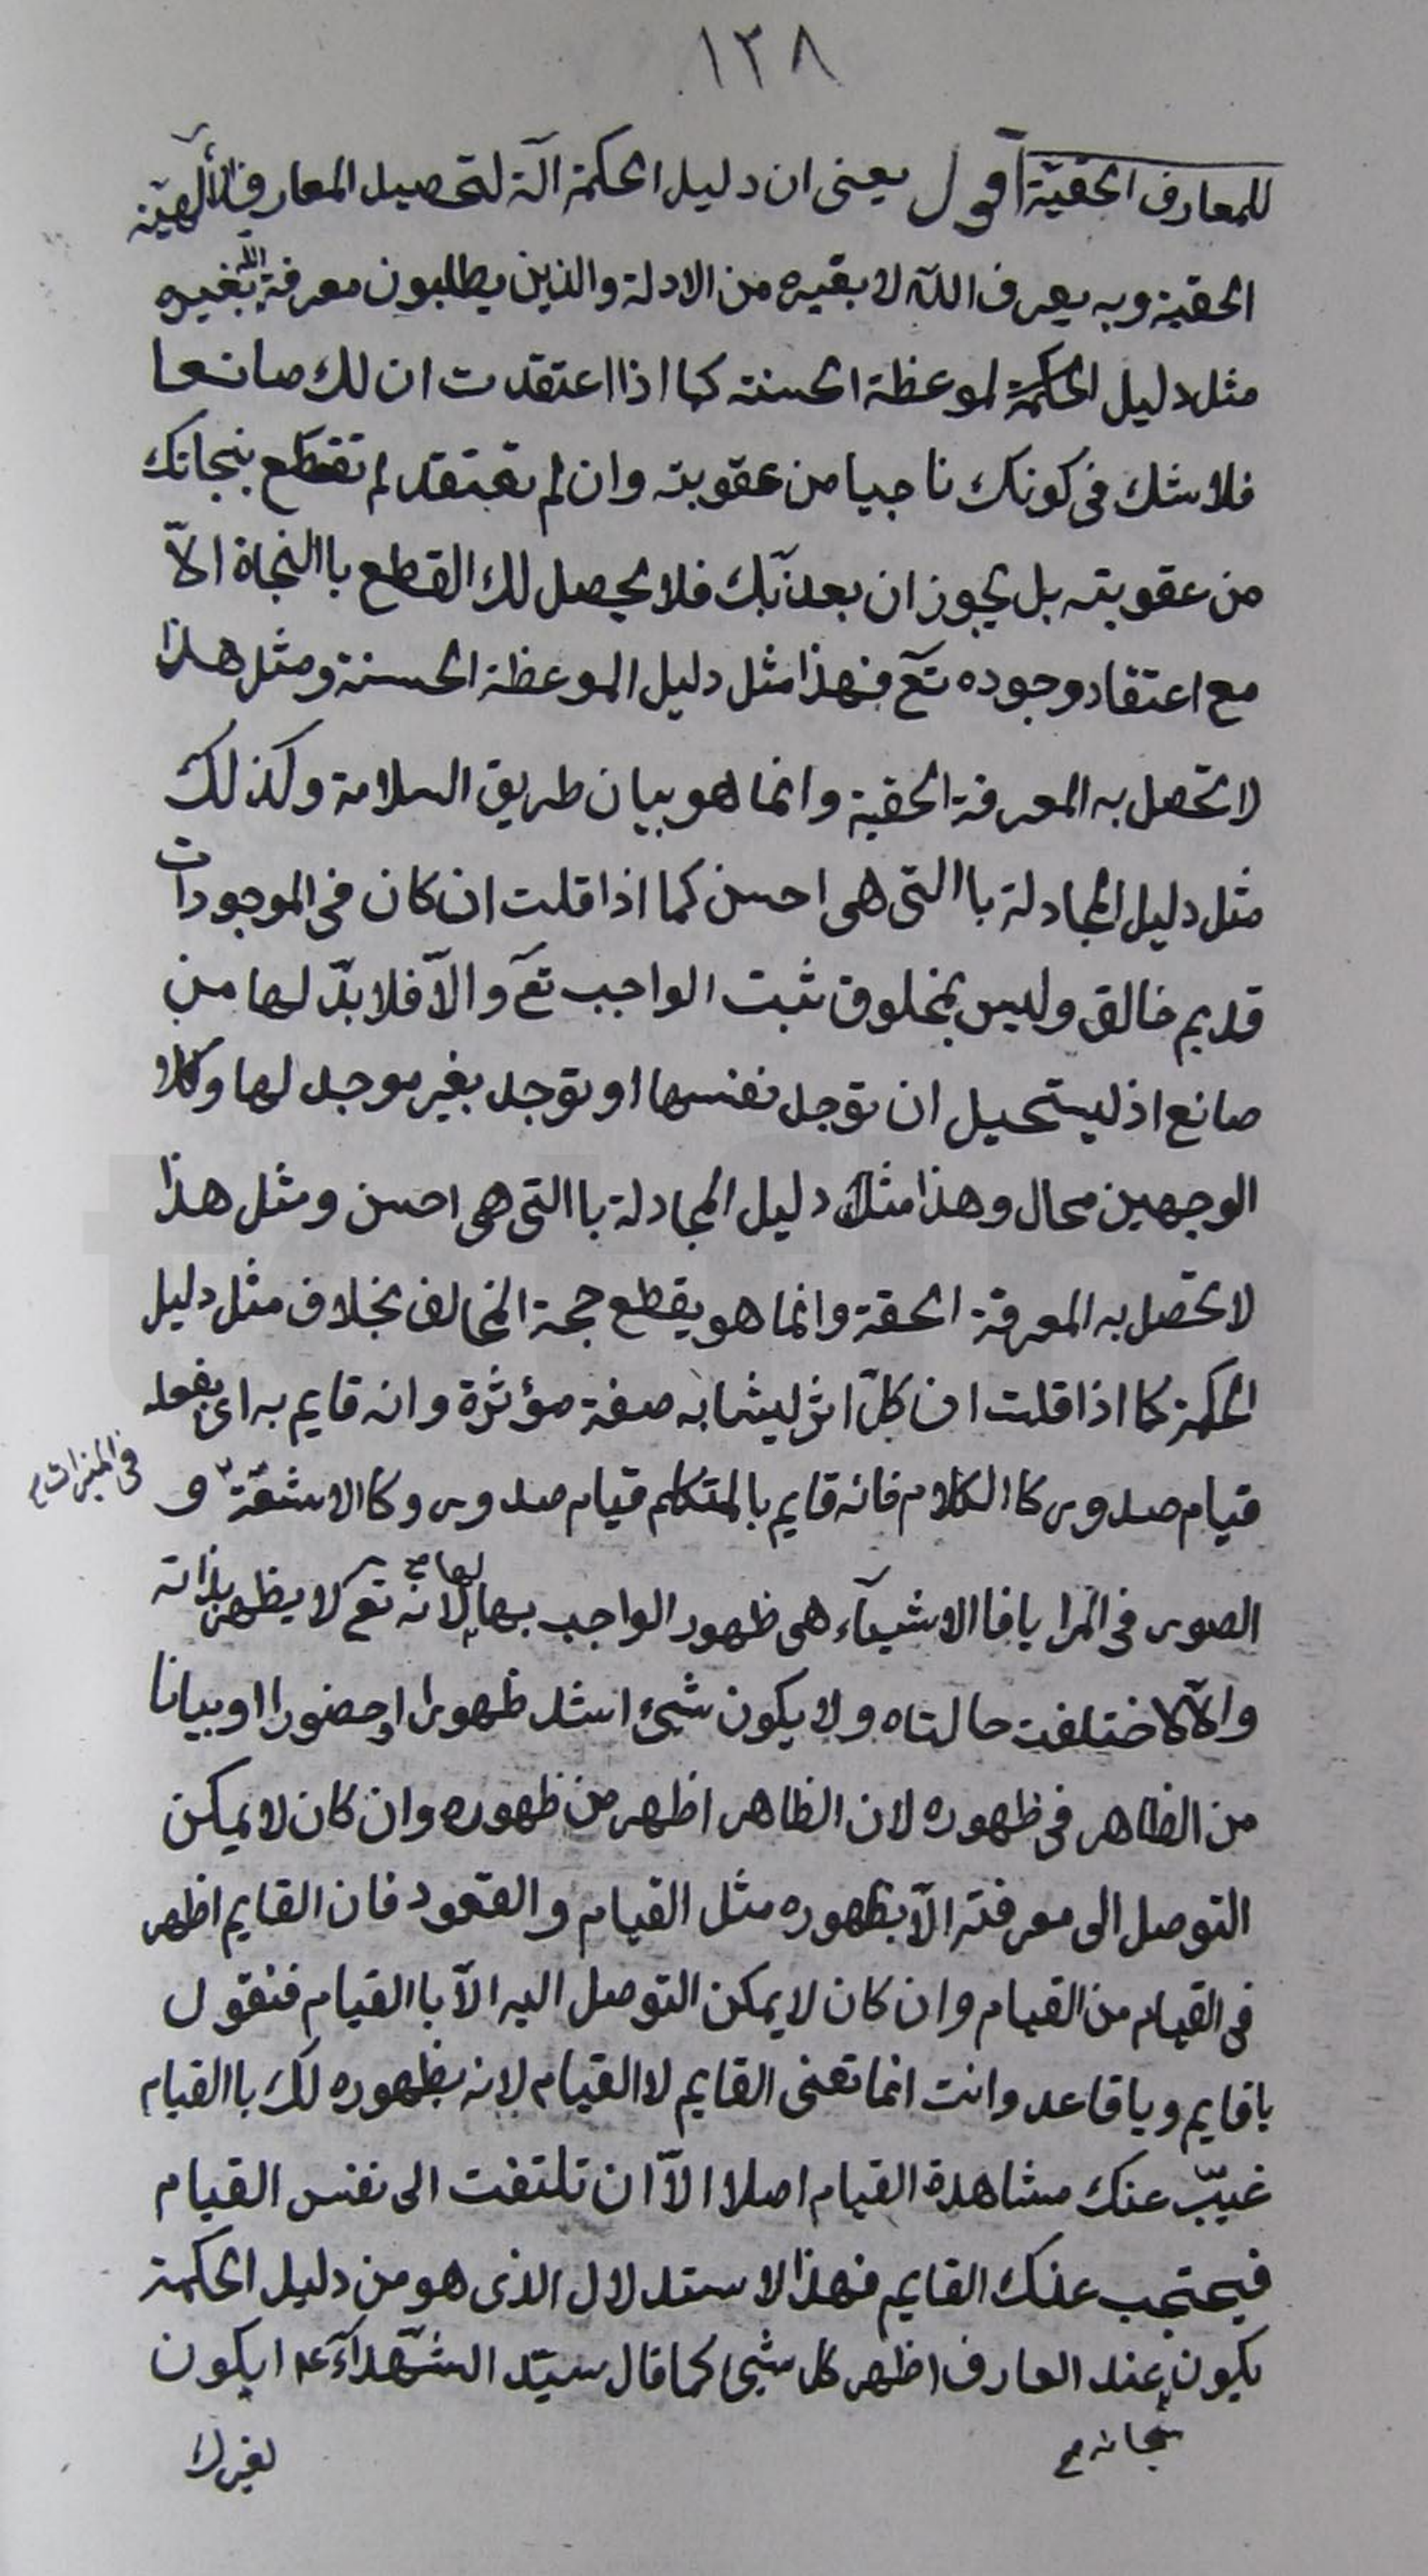 ١٢٨
للمعارف الحقيّة اقول يعنى ان دليل الحكمة الة لتحصيل المعارف الالهيّة
الحقية وبه يعرف الله لا بغيره من الادلة والذين يطلبون معرفة الله بغيره
مثل دليل الحكمة لموعظة الحسنة كما اذا اعتقدت ان لك صانعا
فلا شك فى كونك ناجيا من عقوبته وان لم تعتقد لم تقطع بنجاتك
من عقوبته بل يجوز ان يعذّبك فلا يحصل لك القطع باالنجاة الاّ
مع اعتقاد وجوده تع فهذا مثل دليل الموعظة الحسنة ومثل هذا
لا تحصل به المعرفة الحقية وانما هو بيان طريق السلامة وكذلك
مثل دليل المجادلة باالتى هى احسن كما اذا قلت ان كان فى الموجودات
قديم خالق وليس بمخلوق ثبت الواجب تع والاّ فلا بدّ لها من
صانع اذ ليستحيل ان توجد نفسها او توجد بغير موجد لها وكلا
الوجهين محال وهذا مثل دليل المجادلة باالتى هى احسن ومثل هذا
لا تحصل به المعرفة الحقة وانما هو يقطع حجة المخالف بخلاف مثل دليل
الحكمة كما اذا قلت ان كلّ اثر ليشابه صفة مؤثرة وانه قايم به اى بفعله
قيام صدور كا الكلام فانه قايم بالمتكلم قيام صدور وكا الاشعّة و
الصور فى المرايا فا الاشيآء هى ظهور الواجب بها لها لانه تع لا يظهر بذاته
والاّ لاختلفت حالتاه ولا يكون شىء اشد ظهورا او حضورا او بيانا
من الظاهر فى ظهوره لان الظاهر اظهر من ظهوره وان كان لا يمكن
التوصل الى معرفته الاّ بظهوره مثل القيام والقعود فان القايم اظهر
فى القيام من القيام وان كان لا يمكن التوصل اليه الاّ باالقيام فنقول
يا قايم ويا قاعد وانت انما تعنى القايم لا القيام لانه بظهوره لك باالقيام
غيّب عنك مشاهدة القيام اصلا الاّ ان تلتفت الى نفس القيام
فيحتجب عنك القايم فهذا الاستدلال الذى هو من دليل الحكمة
يكون عند العارف اظهر كل شىء كما قال سيّد الشهدآء ع ايكون
لغيرك